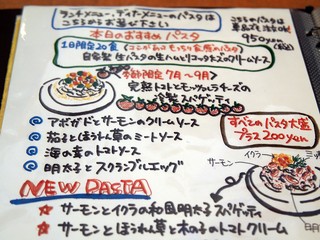 ランチメニュー、ディナーメニューのパスタは
こちらからお選び下さい
こちらのパスタは
単品でも注文OK!
950yen(税込)
本日のおすすめパスタ
1日限定20食(コシがあってもっちり食感のパスタ)
自家製 生パスタの生ハムとリコッタチーズのクリームソース
季節限定 7月〜9月
完熟トマトとモッツァレラチーズの
冷製スパゲティー
@ アボガドとサーモンのクリームソース
@ 茄子とほうれん草のミートソース
@ 海の幸のトマトソース
@ 明太子とスクランブルエッグ
すべてのパスタ大盛
プラス200yen
イクラ
サーモン
NEW PASTA
★ サーモンとイクラの和風明太子スパゲティ
★ サーモンとほうれん草と木の子のトマトクリーム